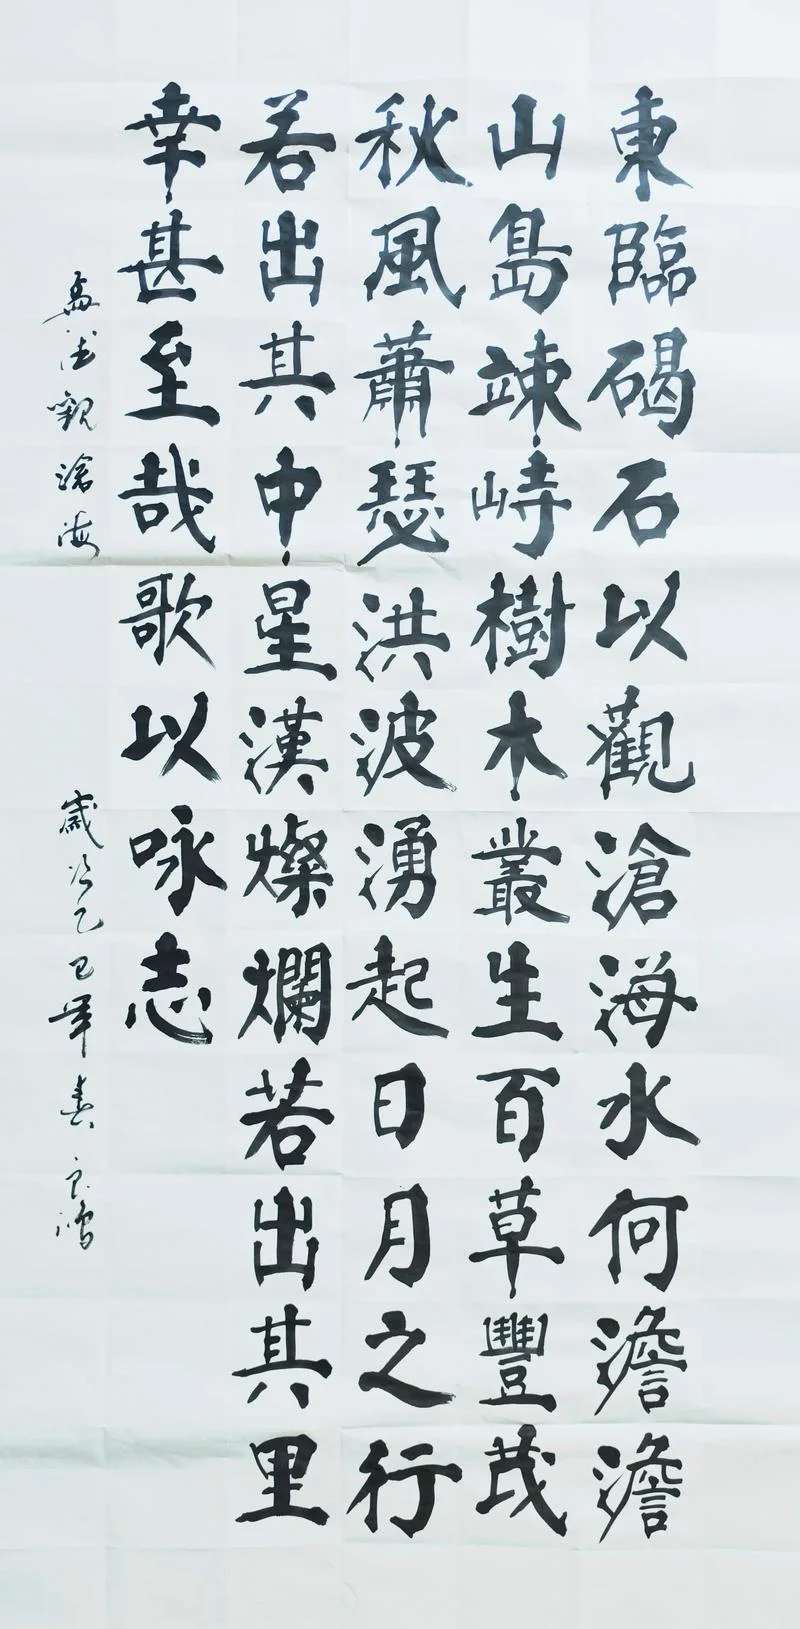 東臨碣石以觀滄海水何澹澹
山島竦峙樹木叢生百草豐茂
秋風蕭瑟洪波湧起日月之行
若出其中星漢燦爛若出其里
幸甚至哉歌以咏志
孟德觀滄海 歲次乙巳年春 良鴻